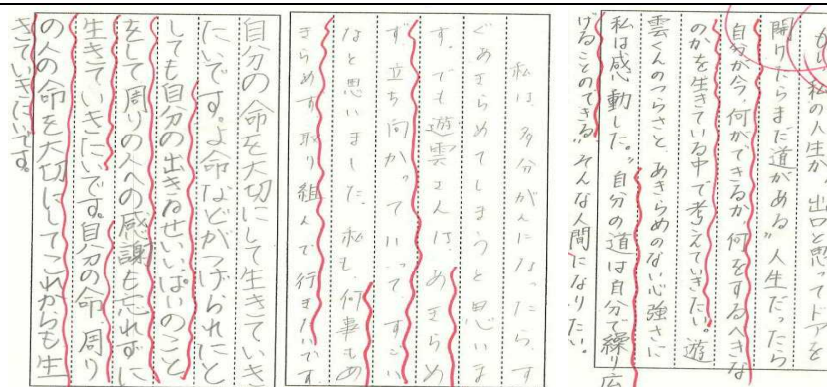 もし私の人生が、出口と思ってドアを
開けたらまだ道がある”人生だったら
自分が今、何ができるか、何をするべきな
のかを生きている中で考えていきたい。遊
雲くんのつらさと、あきらめのない心強さに
私は感動した。”自分の道は自分で繰り広
げることのできる”そんな人間になりたい。
私は多分がんになったらす
ぐあきらめてしまうと思いま
す。でも遊雲さんはあきらめ
ず立ち向かっていってすごい
なと思いました。私も何事もあ
きらめず取り組んで行きたいです
自分の命を大切にして生きていき
たいです。よ命などがつげられたと
しても自分の出きるせいいっぱいのこと
をして周りの人への感謝も忘れずに
生きていきたいです。自分の命、周り
の人の命を大切にしてこれからも生
きていきたいです。